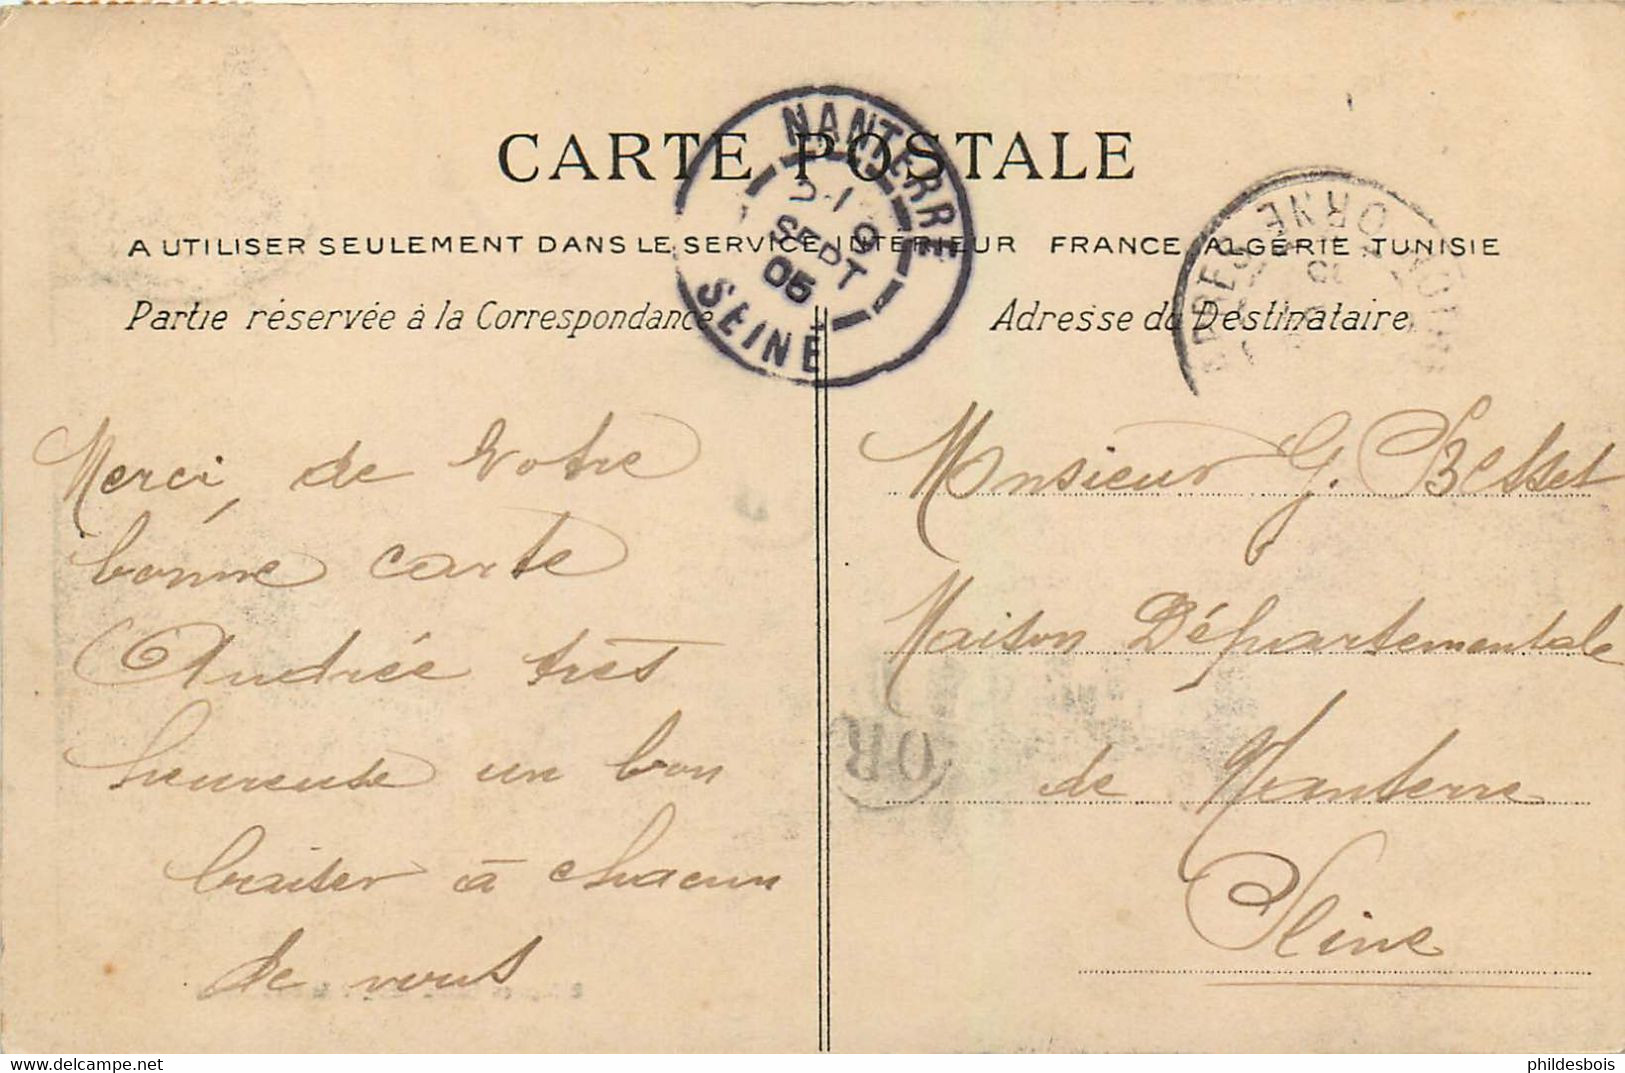 CARTE POSTALE
A UTILISER SEULEMENT DANS LE SERVICE INTERIEUR FRANCE, ALGÉRIE TUNISIE
Partie réservée à la Correspondance
Merci, de Votre
bonne carte
Andrée très
heureuse un bon
baiser à chacun
de vous
Adresse du Destinataire
Monsieur G. Besset
Maison Départementale
de Nanterre
Seine
NANTERRE
SEPT
05
SEINE
ORNE
OR
phildesbois
www.delcampe.net